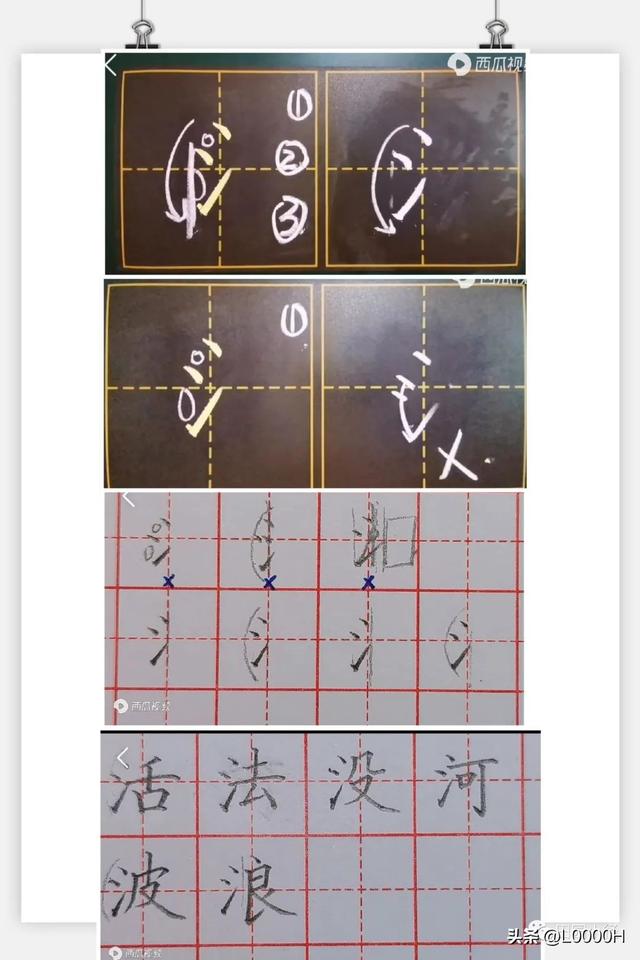 西瓜视频
①
②
③
①
西瓜视频
活 法 没 河
波 浪
头条 @L0000H